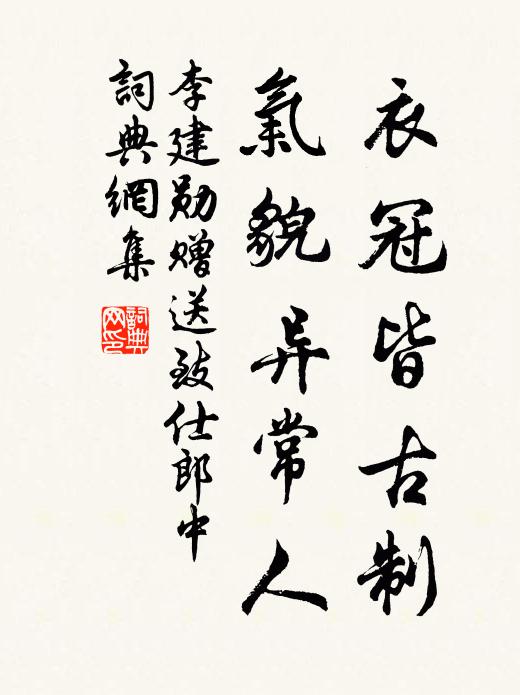 衣冠皆古制
氣貌异常人
李建勛赠送致仕郎中
詞典網集
詞典
网印